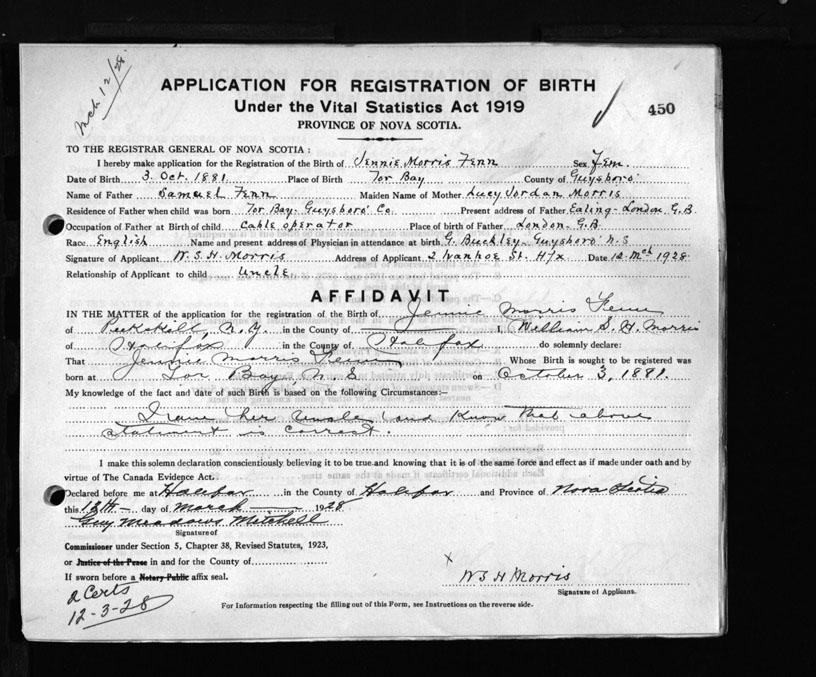 Mch 12/28
APPLICATION FOR REGISTRATION OF BIRTH
Under the Vital Statistics Act 1919
450
PROVINCE OF NOVA SCOTIA.
TO THE REGISTRAR GENERAL OF NOVA SCOTIA :
I hereby make application for the Registration of the Birth of Jennie Morris Fenn Sex Fem.
Date of Birth 3. Oct. 1881. Place of Birth Tor Bay County of Guysboro'
Name of Father Samuel Fenn Maiden Name of Mother Lucy Jordan Morris
Residence of Father when child was born Tor Bay. Guysboro' Co. Present address of Father Ealing-London G.B
Occupation of Father at Birth of child Cable operator Place of birth of Father London. G.B
Race English Name and present address of Physician in attendance at birth G. Buckley. Guysboro' N.S
Signature of Applicant W. S. H. Morris Address of Applicant 2 Ivanhoe St. H/x Date 12 Mch 1928
Relationship of Applicant to child Uncle
AFFIDAVIT
IN THE MATTER of the application for the registration of the Birth of Jennie Morris Fenn
of Peekskill, N.Y. in the County of I, William S. H. Morris
of Halifax in the County of Halifax do solemnly declare:
That Jennie Morris Fenn Whose Birth is sought to be registered was
born at Tor Bay, N.S on October 3, 1881.
My knowledge of the fact and date of such Birth is based on the following Circumstances:—
I am her Uncle and Know that above
statement is correct.
I make this solemn declaration conscientiously believing it to be true and knowing that it is of the same force and effect as if made under oath and by
virtue of The Canada Evidence Act.
Declared before me at Halifax in the County of Halifax and Province of Nova Scotia
this 12th day of March 1928
Guy Meadows Mitchell
Signature of
Commissioner under Section 5, Chapter 38, Revised Statutes, 1923,
or Justice of the Peace in and for the County of
If sworn before a Notary Public affix seal.
x W S H Morris
Signature of Applicant.
2 Certs
12-3-28
For Information respecting the filling out of this Form, see Instructions on the reverse side.